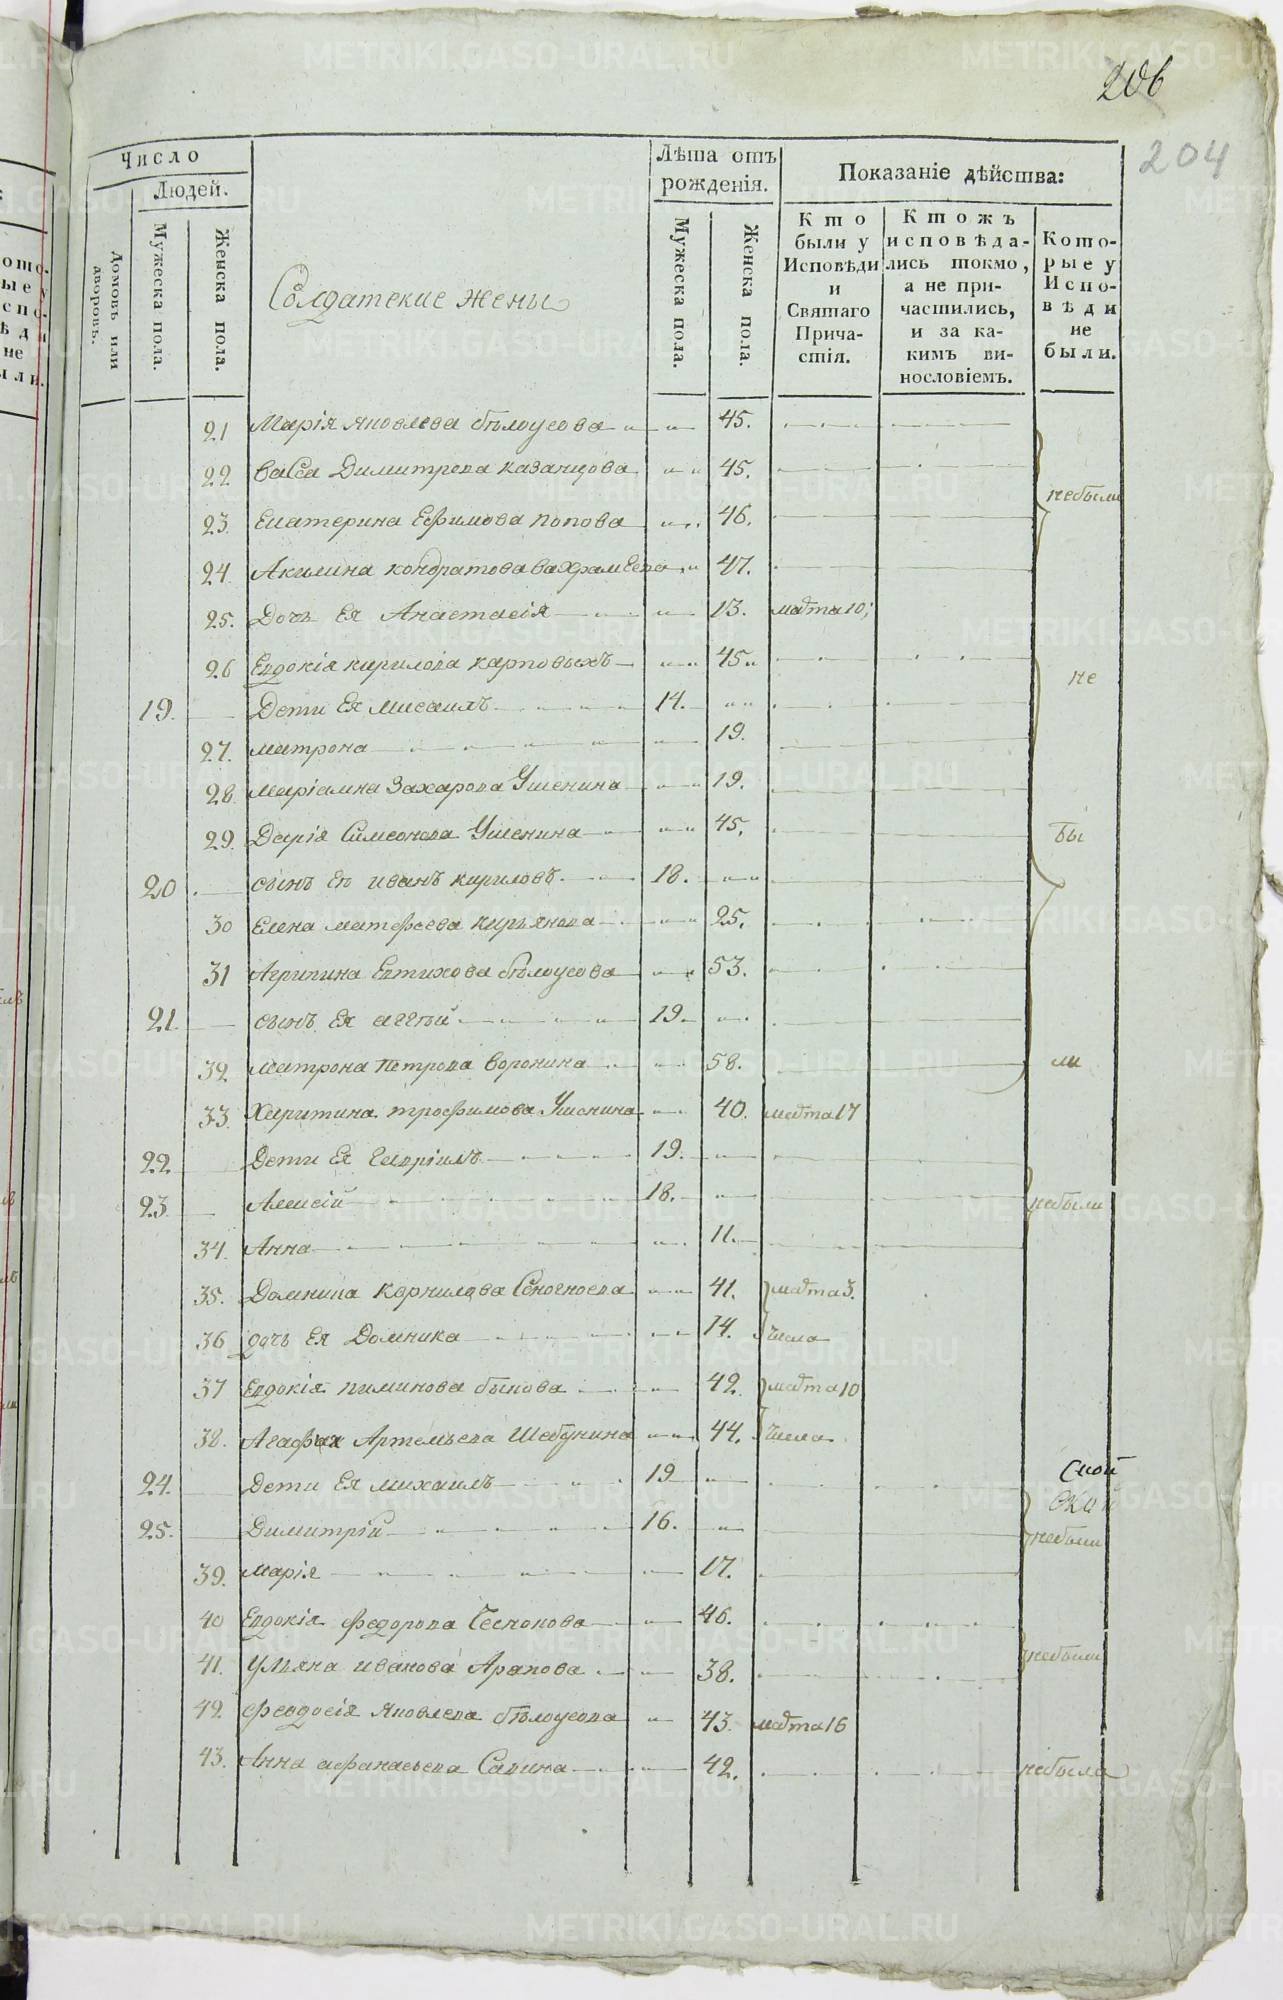 206
204
Число
Людей.
Домовъ или дворовъ.
Мужеска пола.
Женска пола.
Солдатские жены
Лѣта отъ рожденія.
Мужеска пола.
Женска пола.
Показаніе дѣйства:
Кто были у Исповѣди и Святаго Причастія.
Ктожъ исповѣдались токмо, а не причастились, и за какимъ винословіемъ.
Которые у Исповѣди не были.
21 Марія Яковлева бѣлоусова 45.
22 Васса Димитрева казанцова 45. небыли
23. Екатерина Ефимова попова 46.
24. Акилина кондратова вахрамеева 47.
25. Дочь Ея Анастасія 13. марта 10;
26 Евдокія кирилова карповыхъ 45
19. Дети Ея Мисаилъ 14. не
27. матрона 19.
28. маріамна Захарова Ушенина 19.
29. Дарія Симеонова Ушенина 45. бы
20 сынъ Ея иванъ кириловъ 18.
30 Елена матфеева кирьянова 25.
31 Агрипина Евтихова бѣлоусова 53.
21. сынъ Ея аггей 19.
32 матрона петрова воронина 58. ли
33. Харитина трофимова Ушенина 40. марта 17
22. Дети Ея гавріилъ 19.
23. Алексій 18. небыли
34. Анна 11.
35. Домника корнилова 41. марта 3.
36 дочь Ея Домника 14. числа
37 Евдокія пиминова быкова 42. марта 10
38. Агафья Артемьева Шебунина 44. числа
24. Дети Ея михаилъ 19
25. Димитрій 16. небыли
39. марія 17.
40 Евдокія федорова Чеснокова 46.
41. Ульяна иванова Арапова 38. небыли
42. Феодосія Яковлева бѣлоусова 43. марта 16
43. Анна афанасьева Савина 42. небыла
METRIKI.GASO-URAL.RU